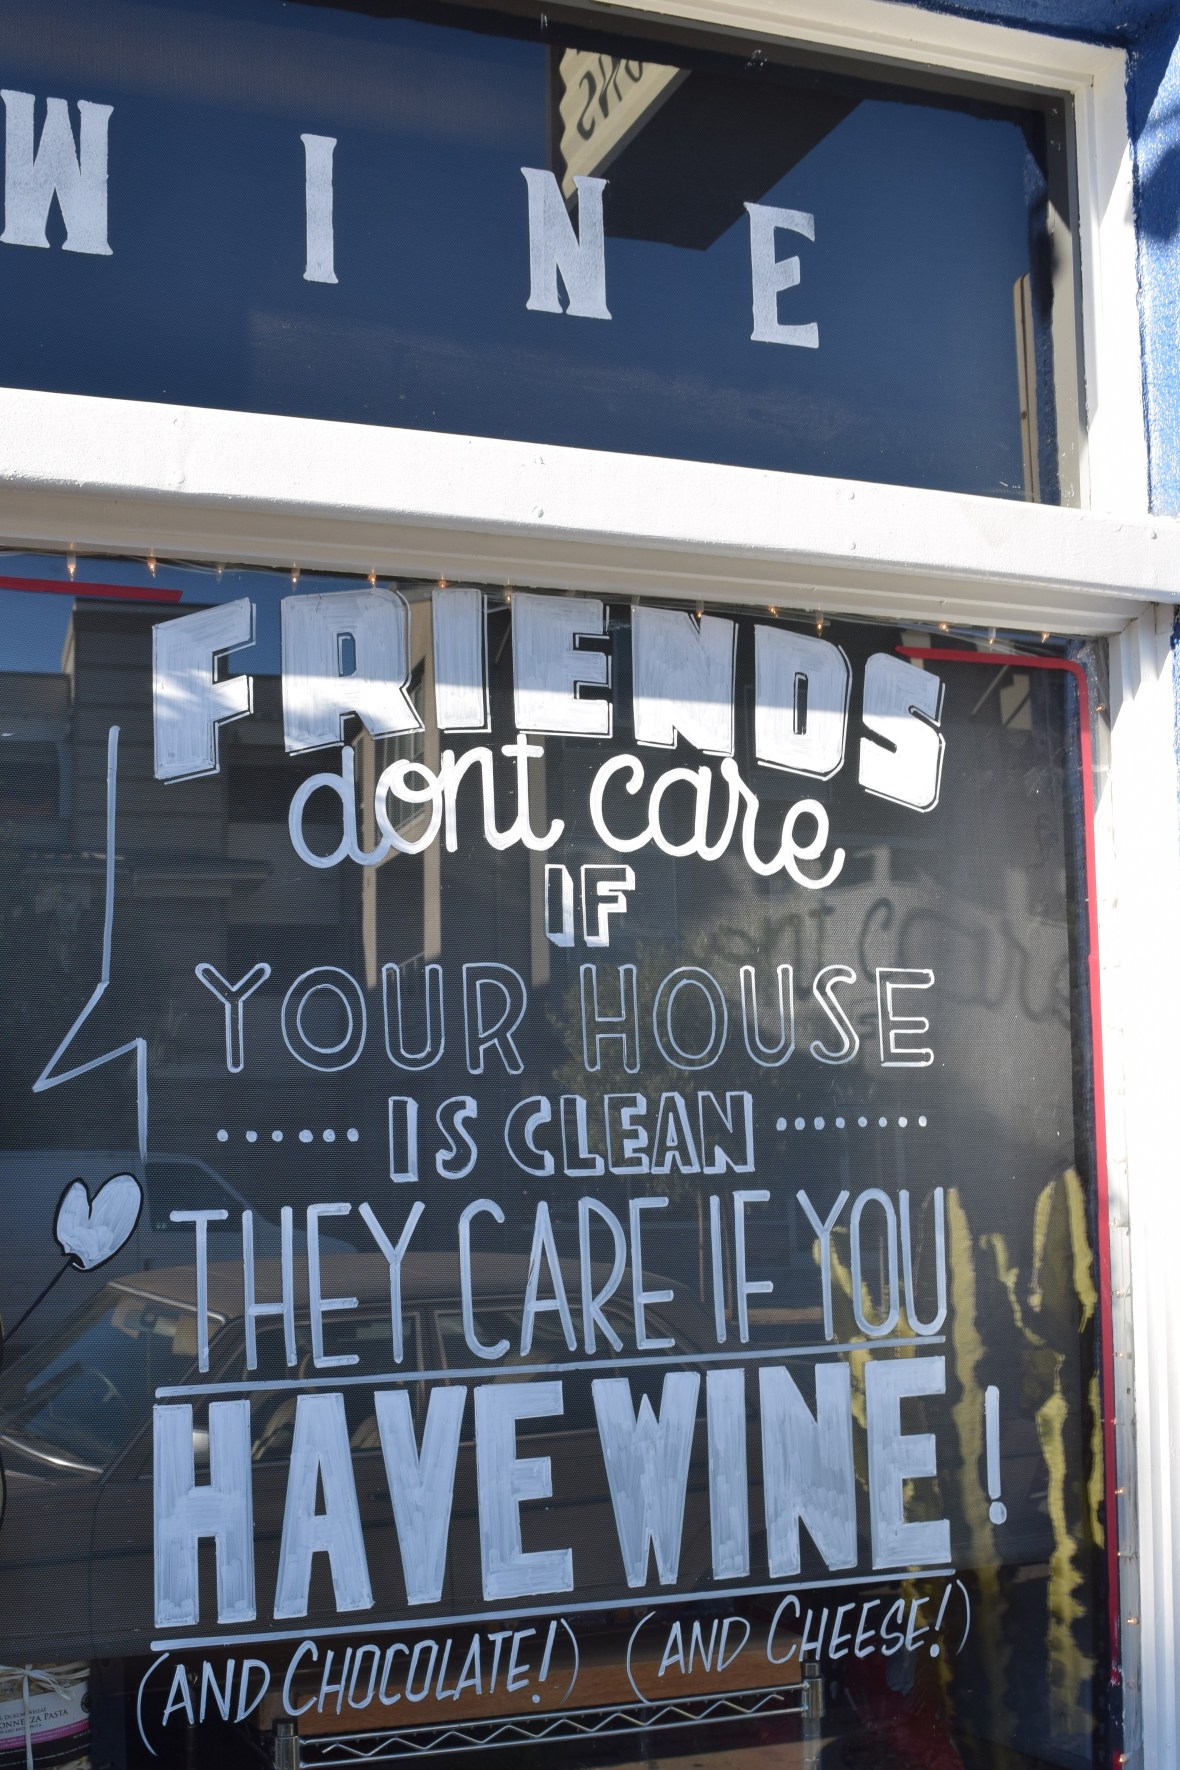 WINE
FRIENDS
dont care
IF
YOUR HOUSE
IS CLEAN
THEY CARE IF YOU
HAVE WINE!
(AND CHOCOLATE!) (AND CHEESE!)
PASTA